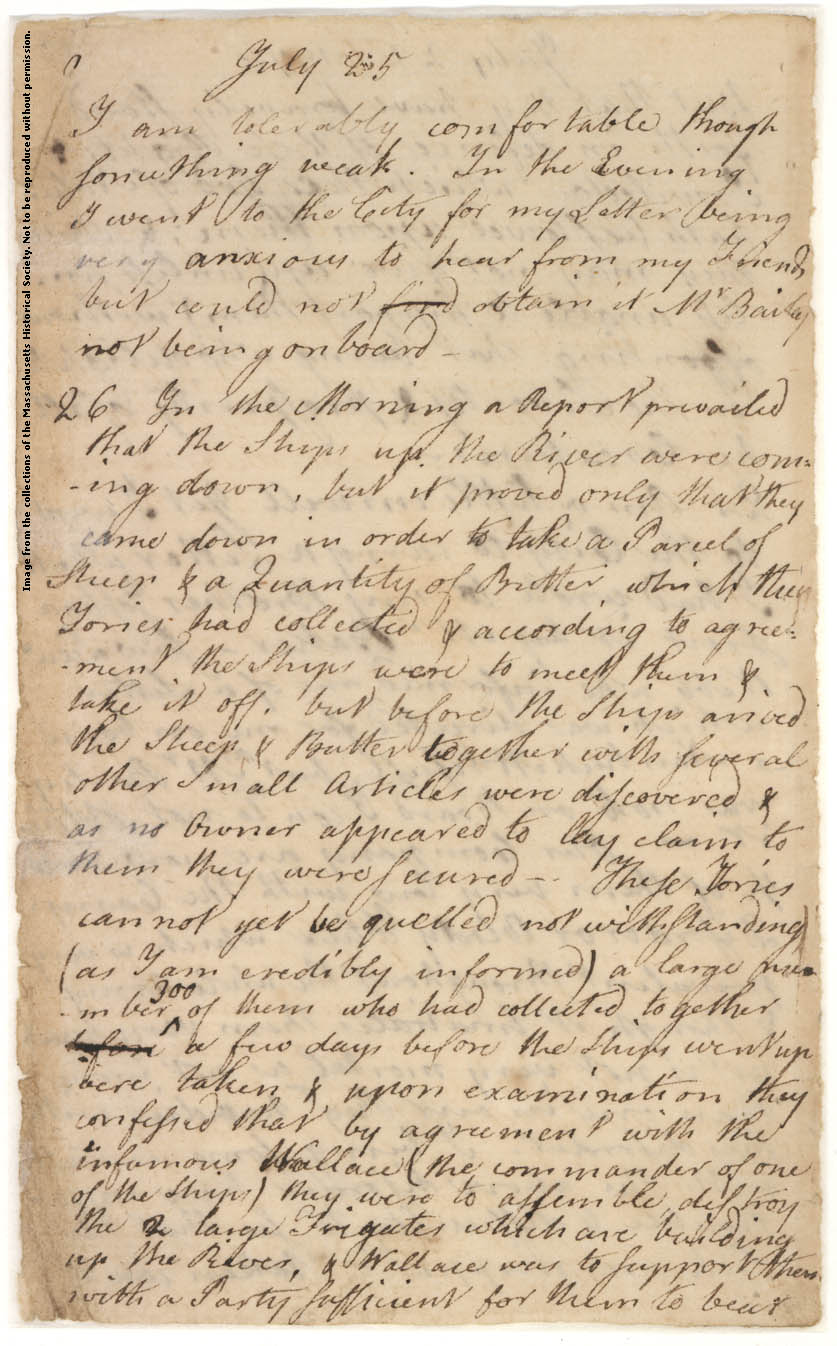 July 25
I am tolerably comfortable though
something weak. In the Evening
I went to the City for my Letter being
very anxious to hear from my Friends
but could not find obtain it Mr Bailey
not being on board -
26 In the Morning a Report prevailed
that the Ships up the River were com=
-ing down, but it proved only that they
came down in order to take a Parcel of
Sheep & a Quantity of Butter which the
Tories had collected & according to agree=
-ment the Ships were to meet them &
take it off. but before the Ships arived
the Sheep & Butter together with several
other small Articles were discovered &
as no Owner appeared to lay claim to
them they were secured -. These Tories
cannot yet be quelled notwithstanding
(as I am credibly informed) a large nu=
-mber 300 of them who had collected together
before a few days before the Ships went up
were taken & upon examination they
confessed that by agreement with the
infamous Wallace (the commander of one
of the Ships) they were to assemble, destroy
the 2 large Frigates which are building
up the River, & Wallace was to support them
with a Party sufficient for them to bear
Image from the collections of the Massachusetts Historical Society. Not to be reproduced without permission.